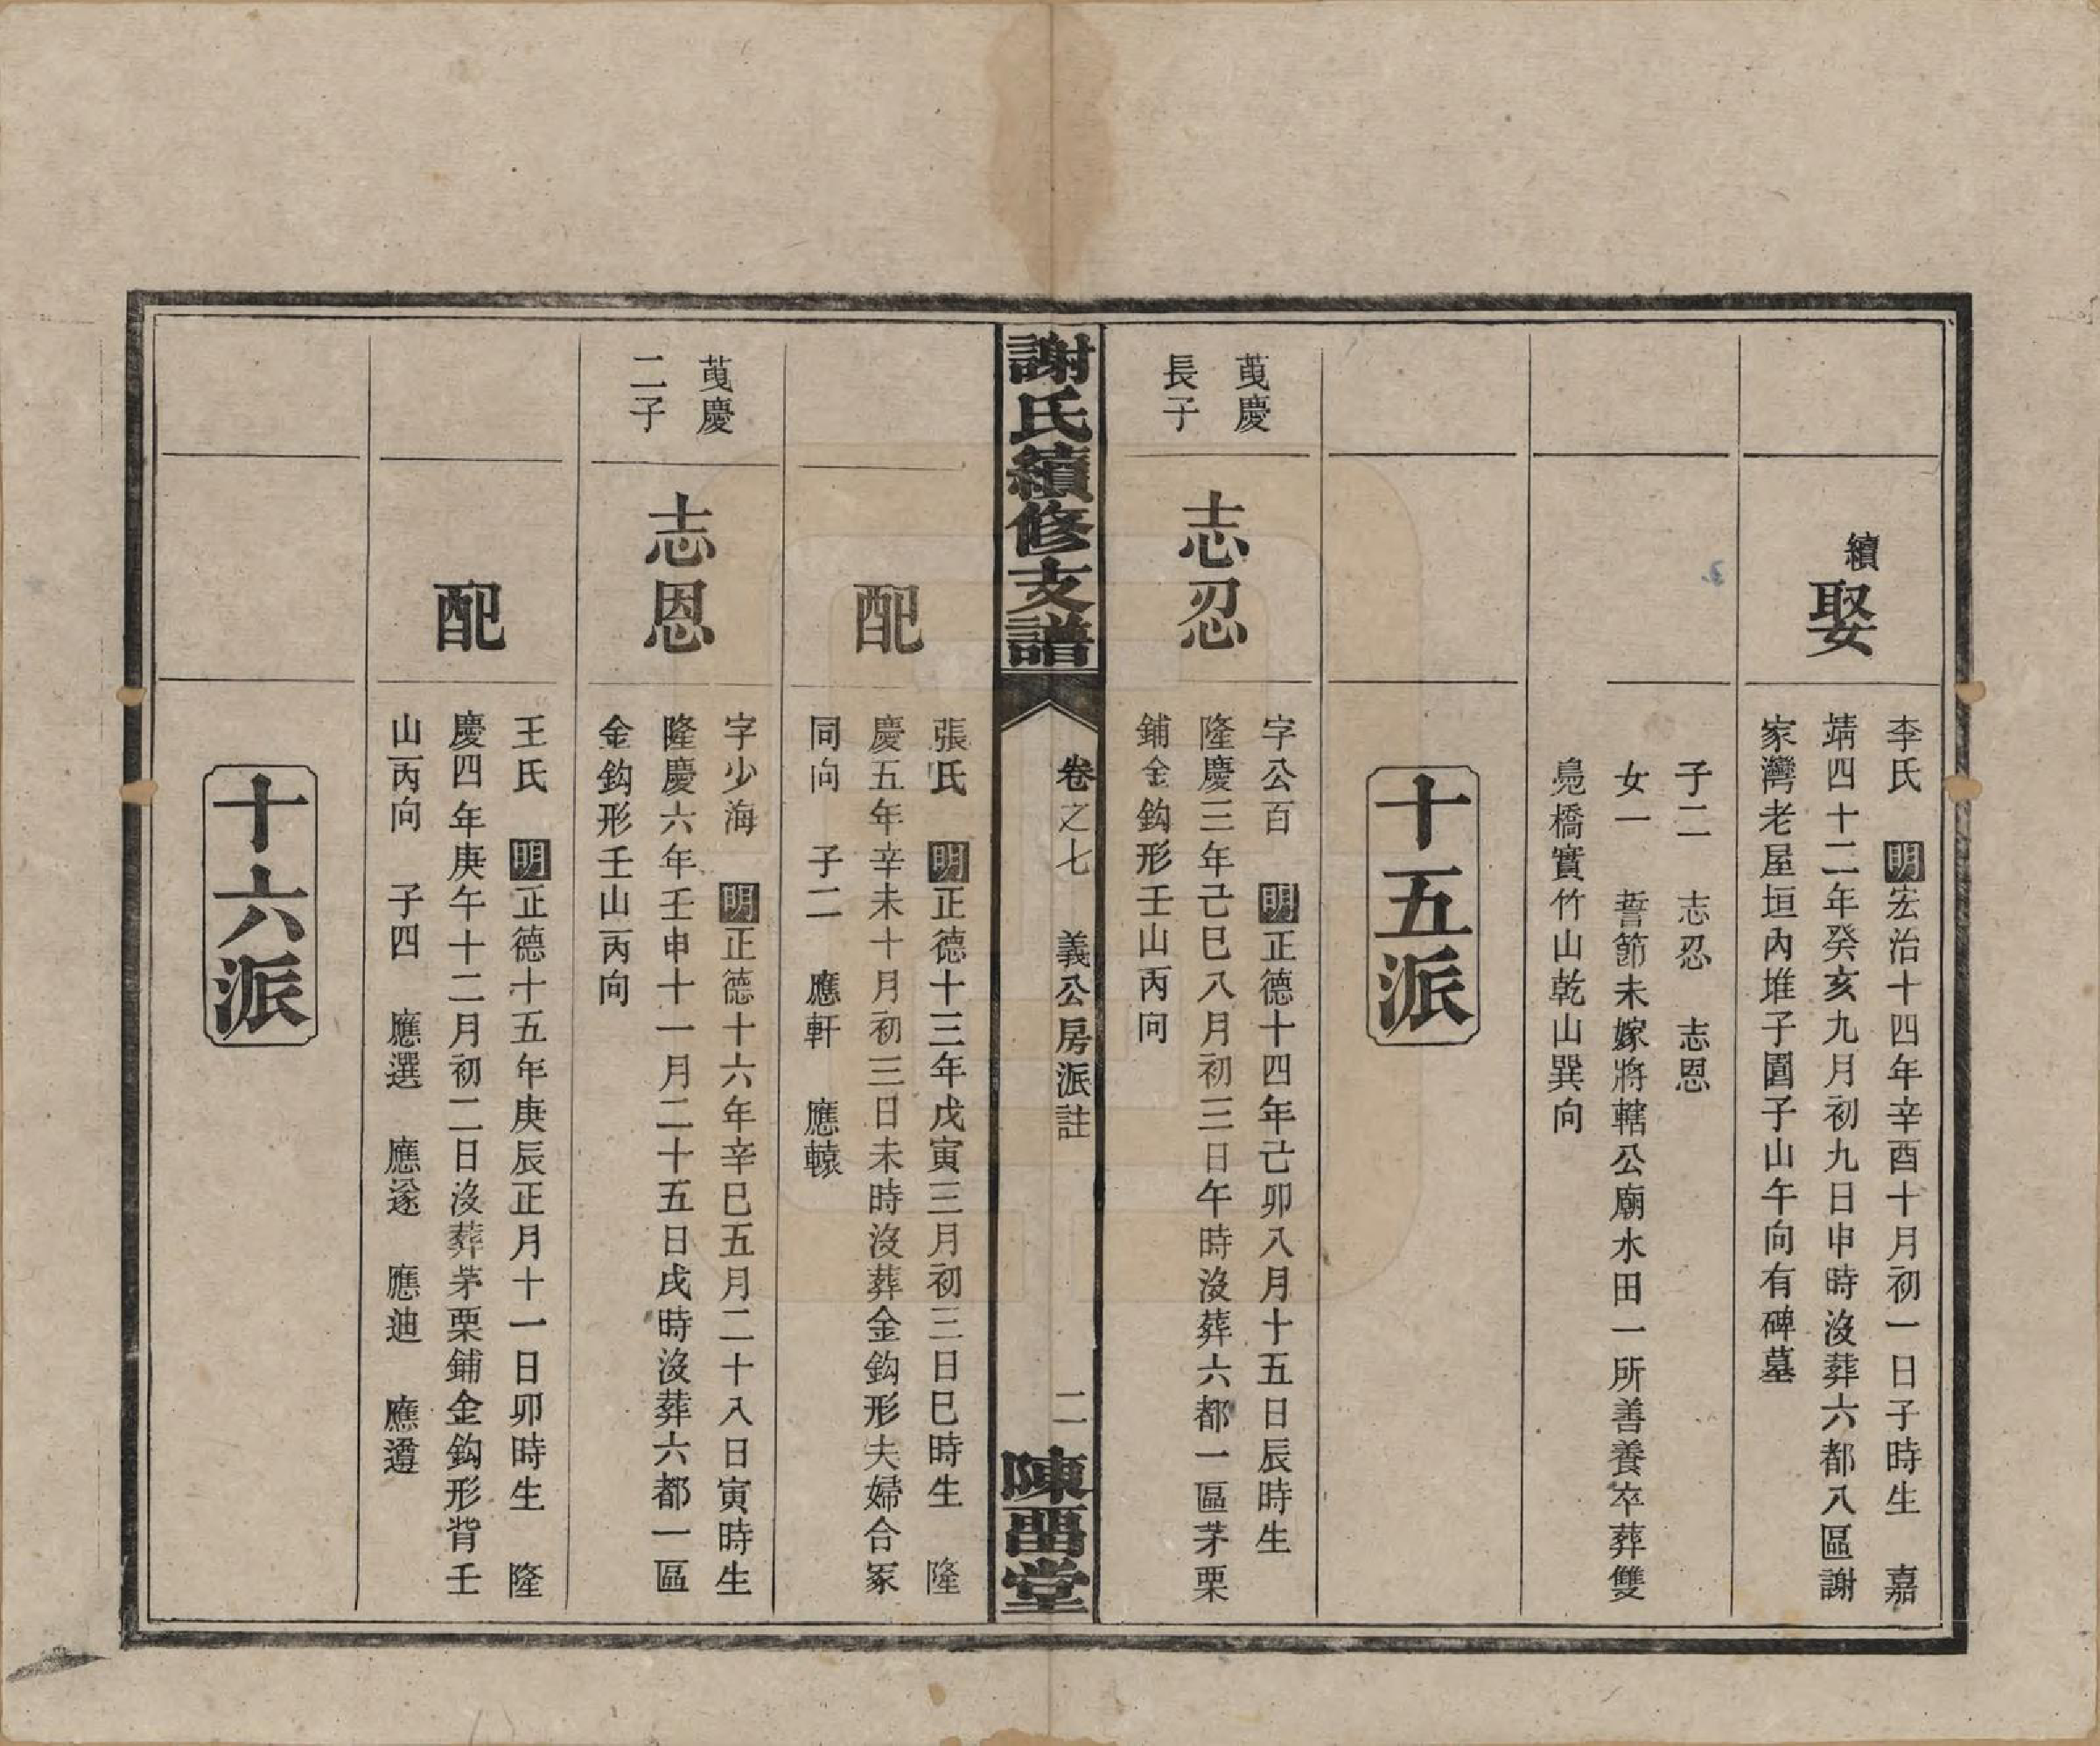 續
娶
李氏　明宏治十四年辛酉十月初一日子時生　嘉
靖四十二年癸亥九月初九日申時沒葬六都八區謝
家灣老屋垣內堆子園子山午向有碑墓
子二　志忍　志恩
女一　誓節未嫁將轄公廟水田一所善養卒葬雙
鳧橋實竹山乾山巽向
十五派
蕆慶
長子
志忍
字公百　明正德十四年己卯八月十五日辰時生
隆慶三年己巳八月初三日午時沒葬六都一區茅栗
鋪金鈎形壬山丙向
謝氏續修支譜
卷之七　義公房派註
二
陳畱堂
配
張氏　明正德十三年戊寅三月初三日巳時生　隆
慶五年辛未十月初三日未時沒葬金鈎形夫婦合冢
同向　子二　應軒　應轅
蕆慶
二子
志恩
字少海　明正德十六年辛巳五月二十八日寅時生
隆慶六年壬申十一月二十五日戌時沒葬六都一區
金鈎形壬山丙向
配
王氏　明正德十五年庚辰正月十一日卯時生　隆
慶四年庚午十二月初二日沒葬茅栗鋪金鈎形背壬
山丙向　子四　應選　應遂　應迪　應遵
十六派